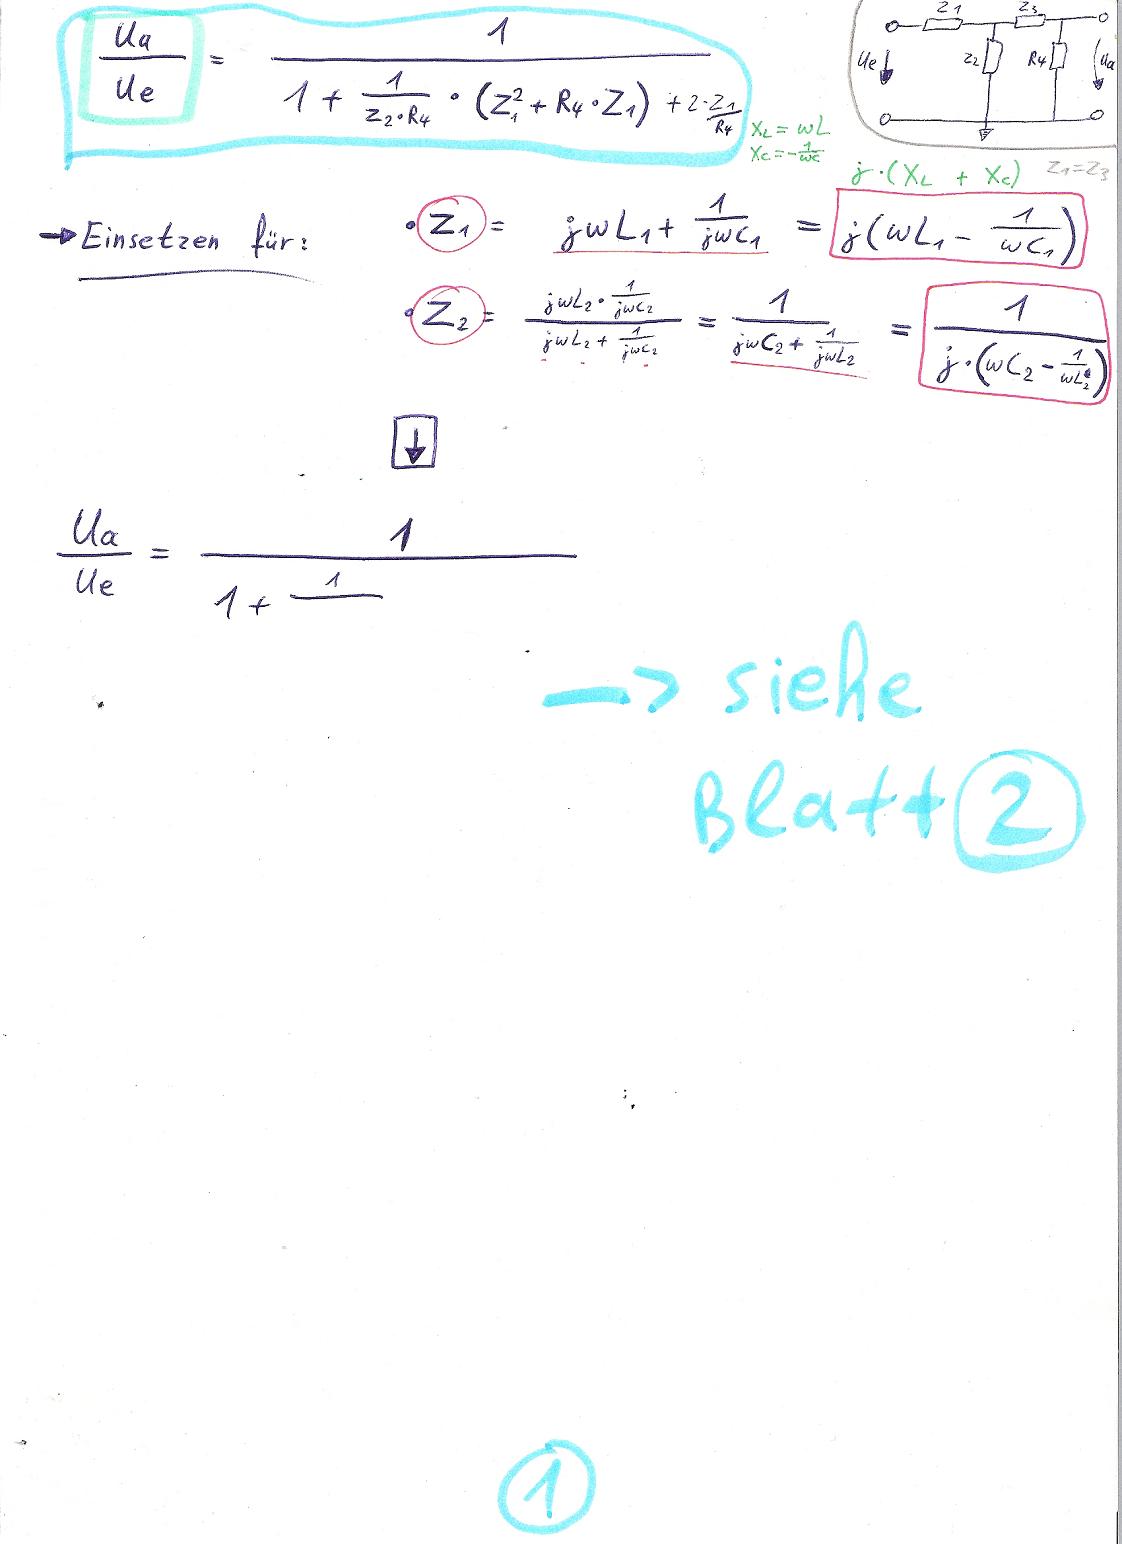 Ua/Ue = 1/(1 + 1/(Z2·R4) · (Z1² + R4·Z1) + 2·Z1/R4)
Z1 Z3
Ue Z2 R4 Ua
XL = ωL
XC = -1/ωC
j·(XL + Xc) Z1=Z3
→ Einsetzen für: • Z1 = jωL1 + 1/jωC1 = j(ωL1 - 1/ωC1)
• Z2 = (jωL2 · 1/jωC2)/(jωL2 + 1/jωC2) = 1/(jωC2 + 1/jωL2) = 1/(j·(ωC2 - 1/ωL2))
↓
Ua/Ue = 1/(1 + 1/
—> siehe
Blatt 2
1